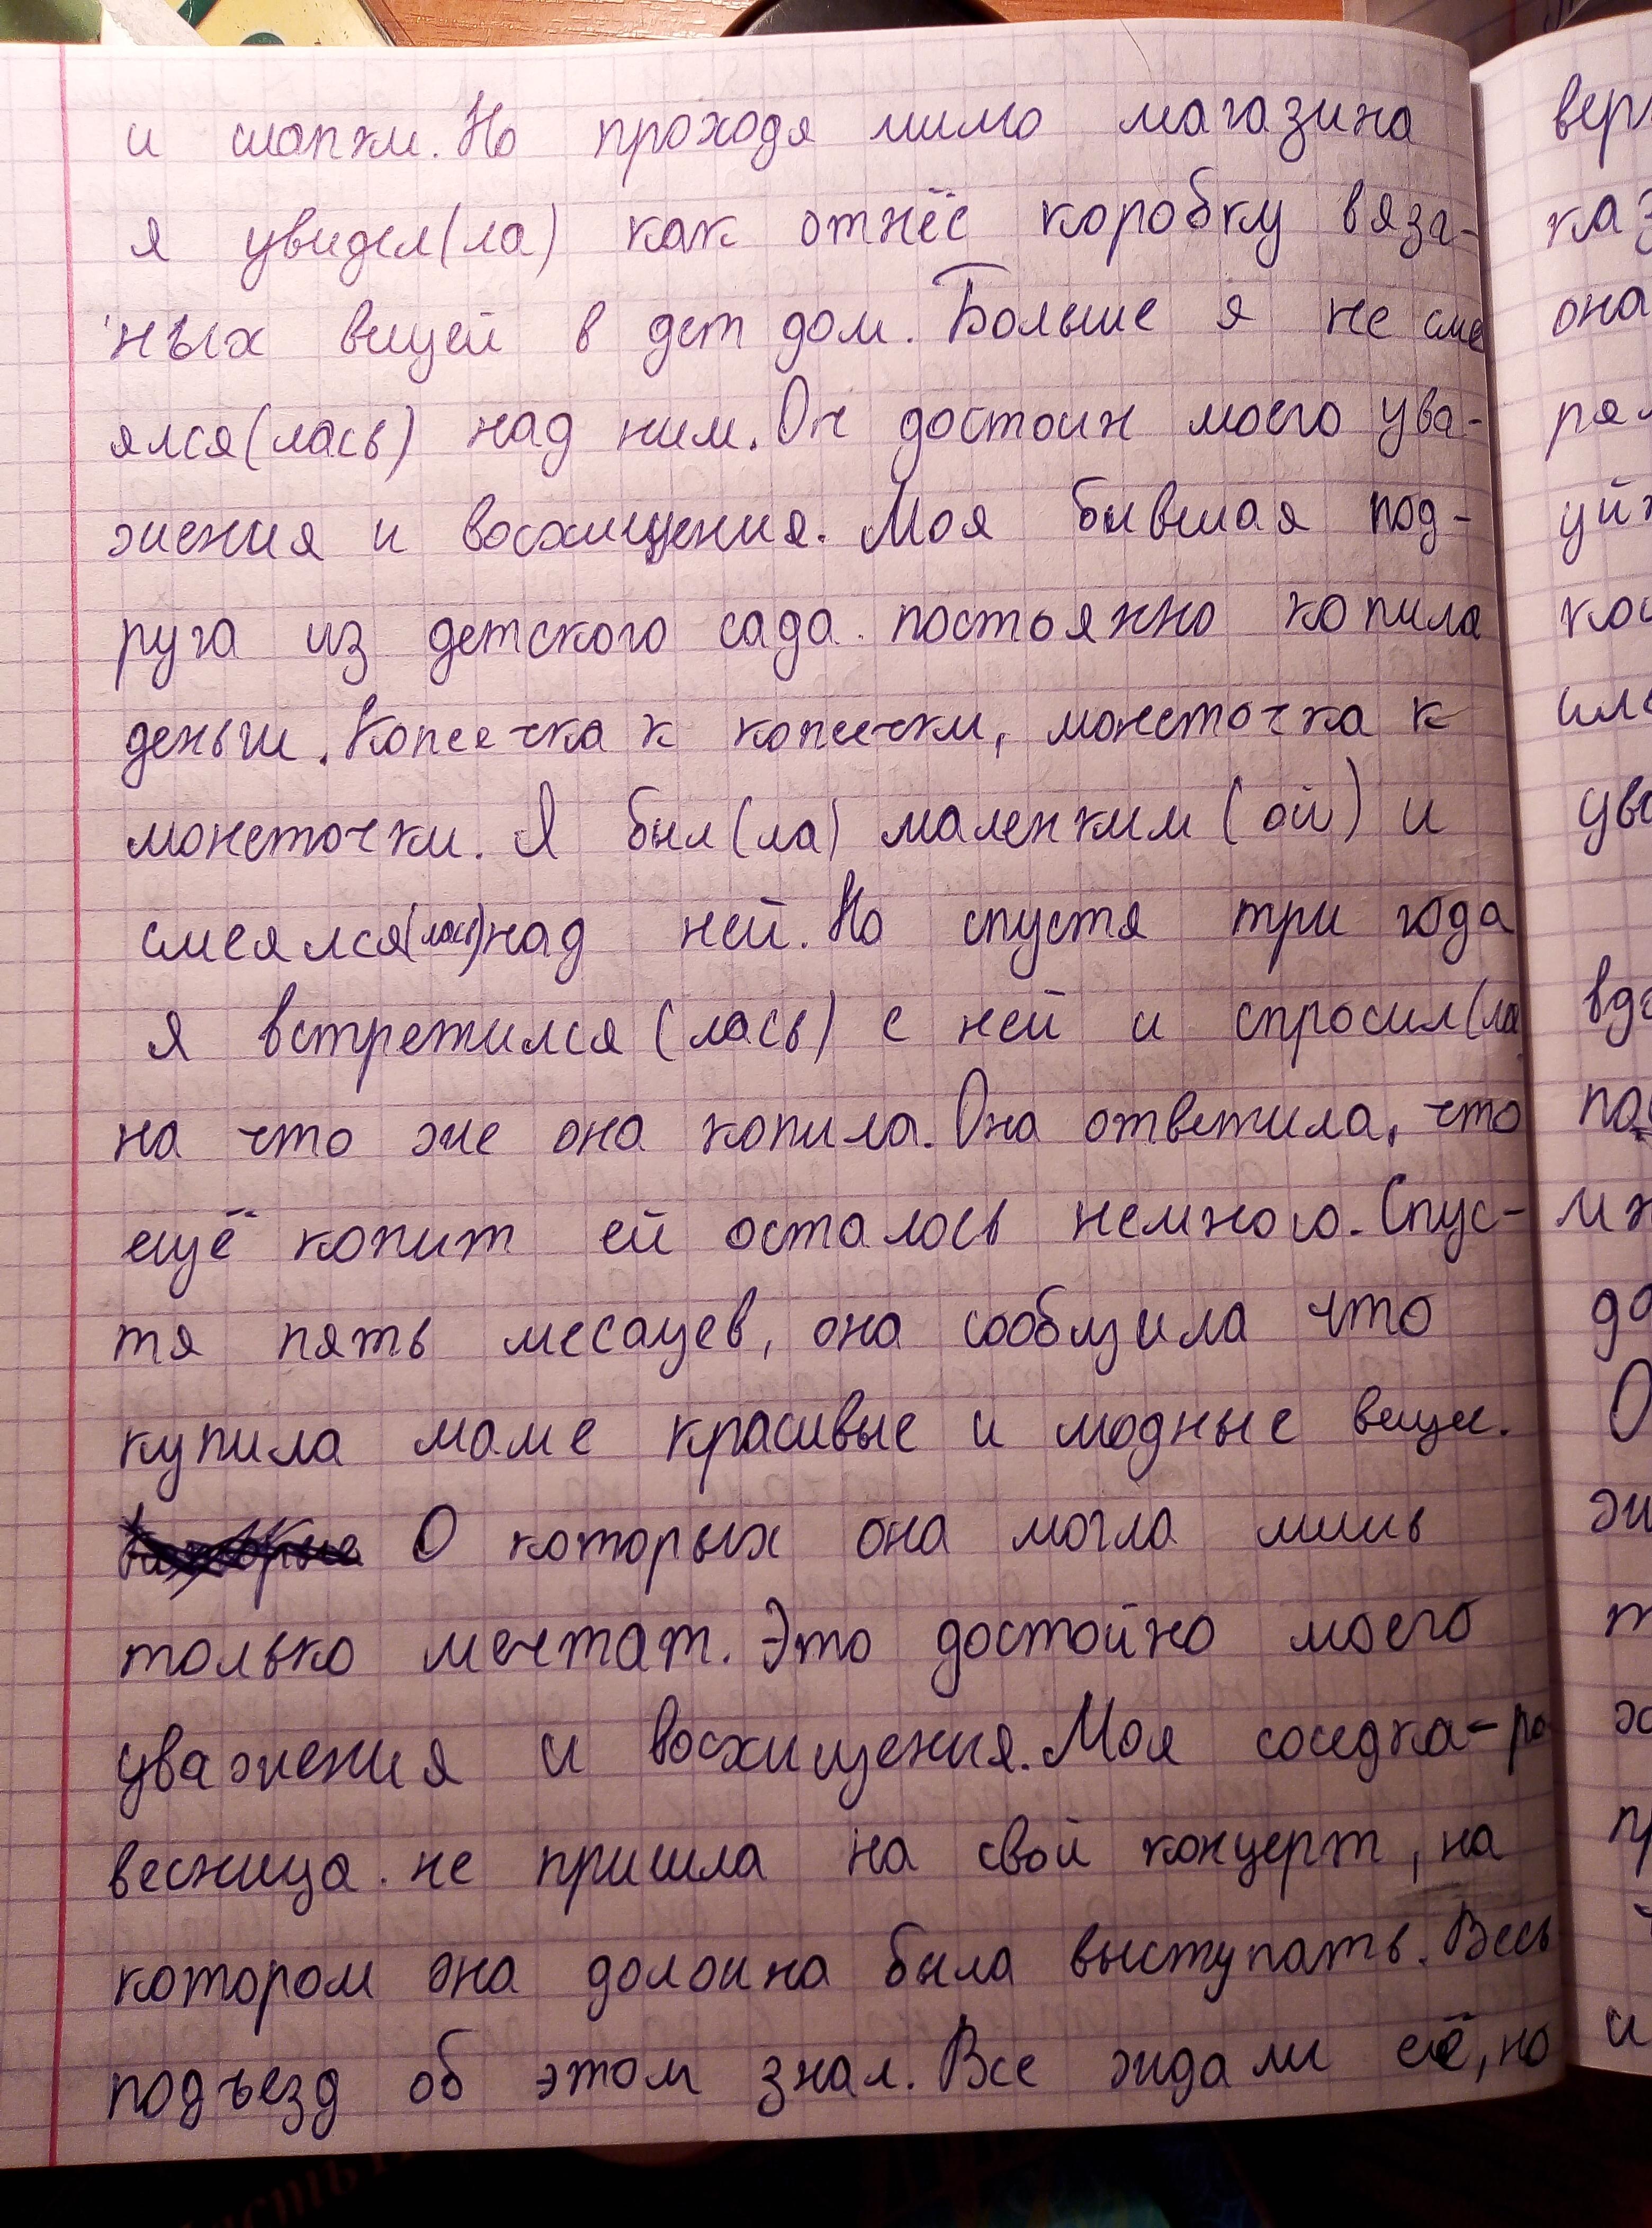 и шапки. Но проходя мимо магазина
я увидел(ла) как отнёс коробку вяза-
ных вещей в дет дом. Больше я не сме
ялся(лась) над ним. Он достоин моего ува-
жения и восхищения. Моя бывшая под-
руга из детского сада постоянно копила
деньги. Копеечка к копеечки, монеточка к
монеточки. Я был(ла) маленким (ой) и
смеялся(лась) над ней. Но спустя три года
я встретился (лась) с ней и спросил(ла
на что же она копила. Она ответила, что
ещё копит ей осталось немного. Спус-
тя пять месацев, она сообщила что
купила маме красивые и модные вещи.
О которых она могла лишь
только мечтат. Это достойно моего
уважения и восхищения. Моя соседка-ро
весница не пришла на свой концерт, на
котором она должна была выступать. Весь
подъезд об этом знал. Все ждали её, но